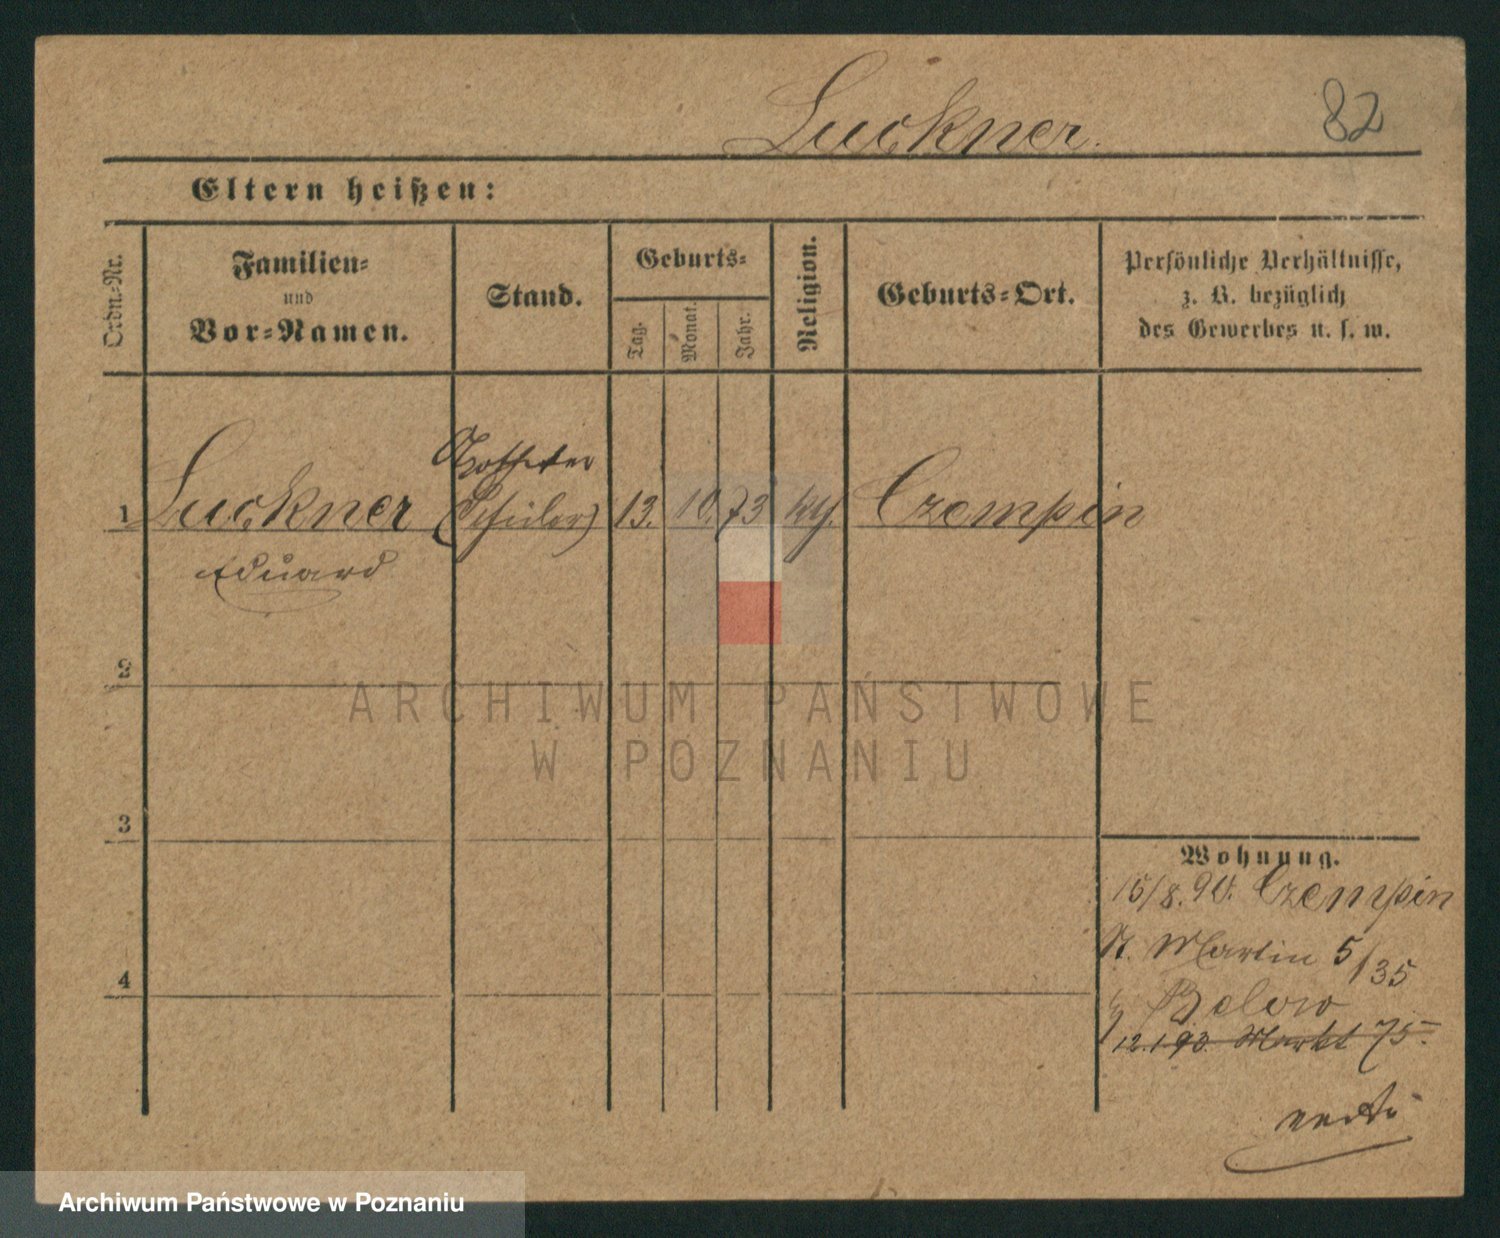 Luckner.
82
Eltern heißen:
Ordn.-Nr.
Familien-
und
Vor-Namen.
Stand.
Geburts-
Tag.
Monat.
Jahr.
Religion.
Geburts-Ort.
Persönliche Verhältnisse,
z. B. bezüglich
des Gewerbes u. s. w.
1 Luckner (Schüler) 13. 10. 73 Czempin
Eduard
2
3
4
Wohnung.
15/8. 90. Czempin
St. Martin 5/35
Below
12.1.93. Markt 75.
ARCHIWUM PAŃSTWOWE
W POZNANIU
Archiwum Państwowe w Poznaniu